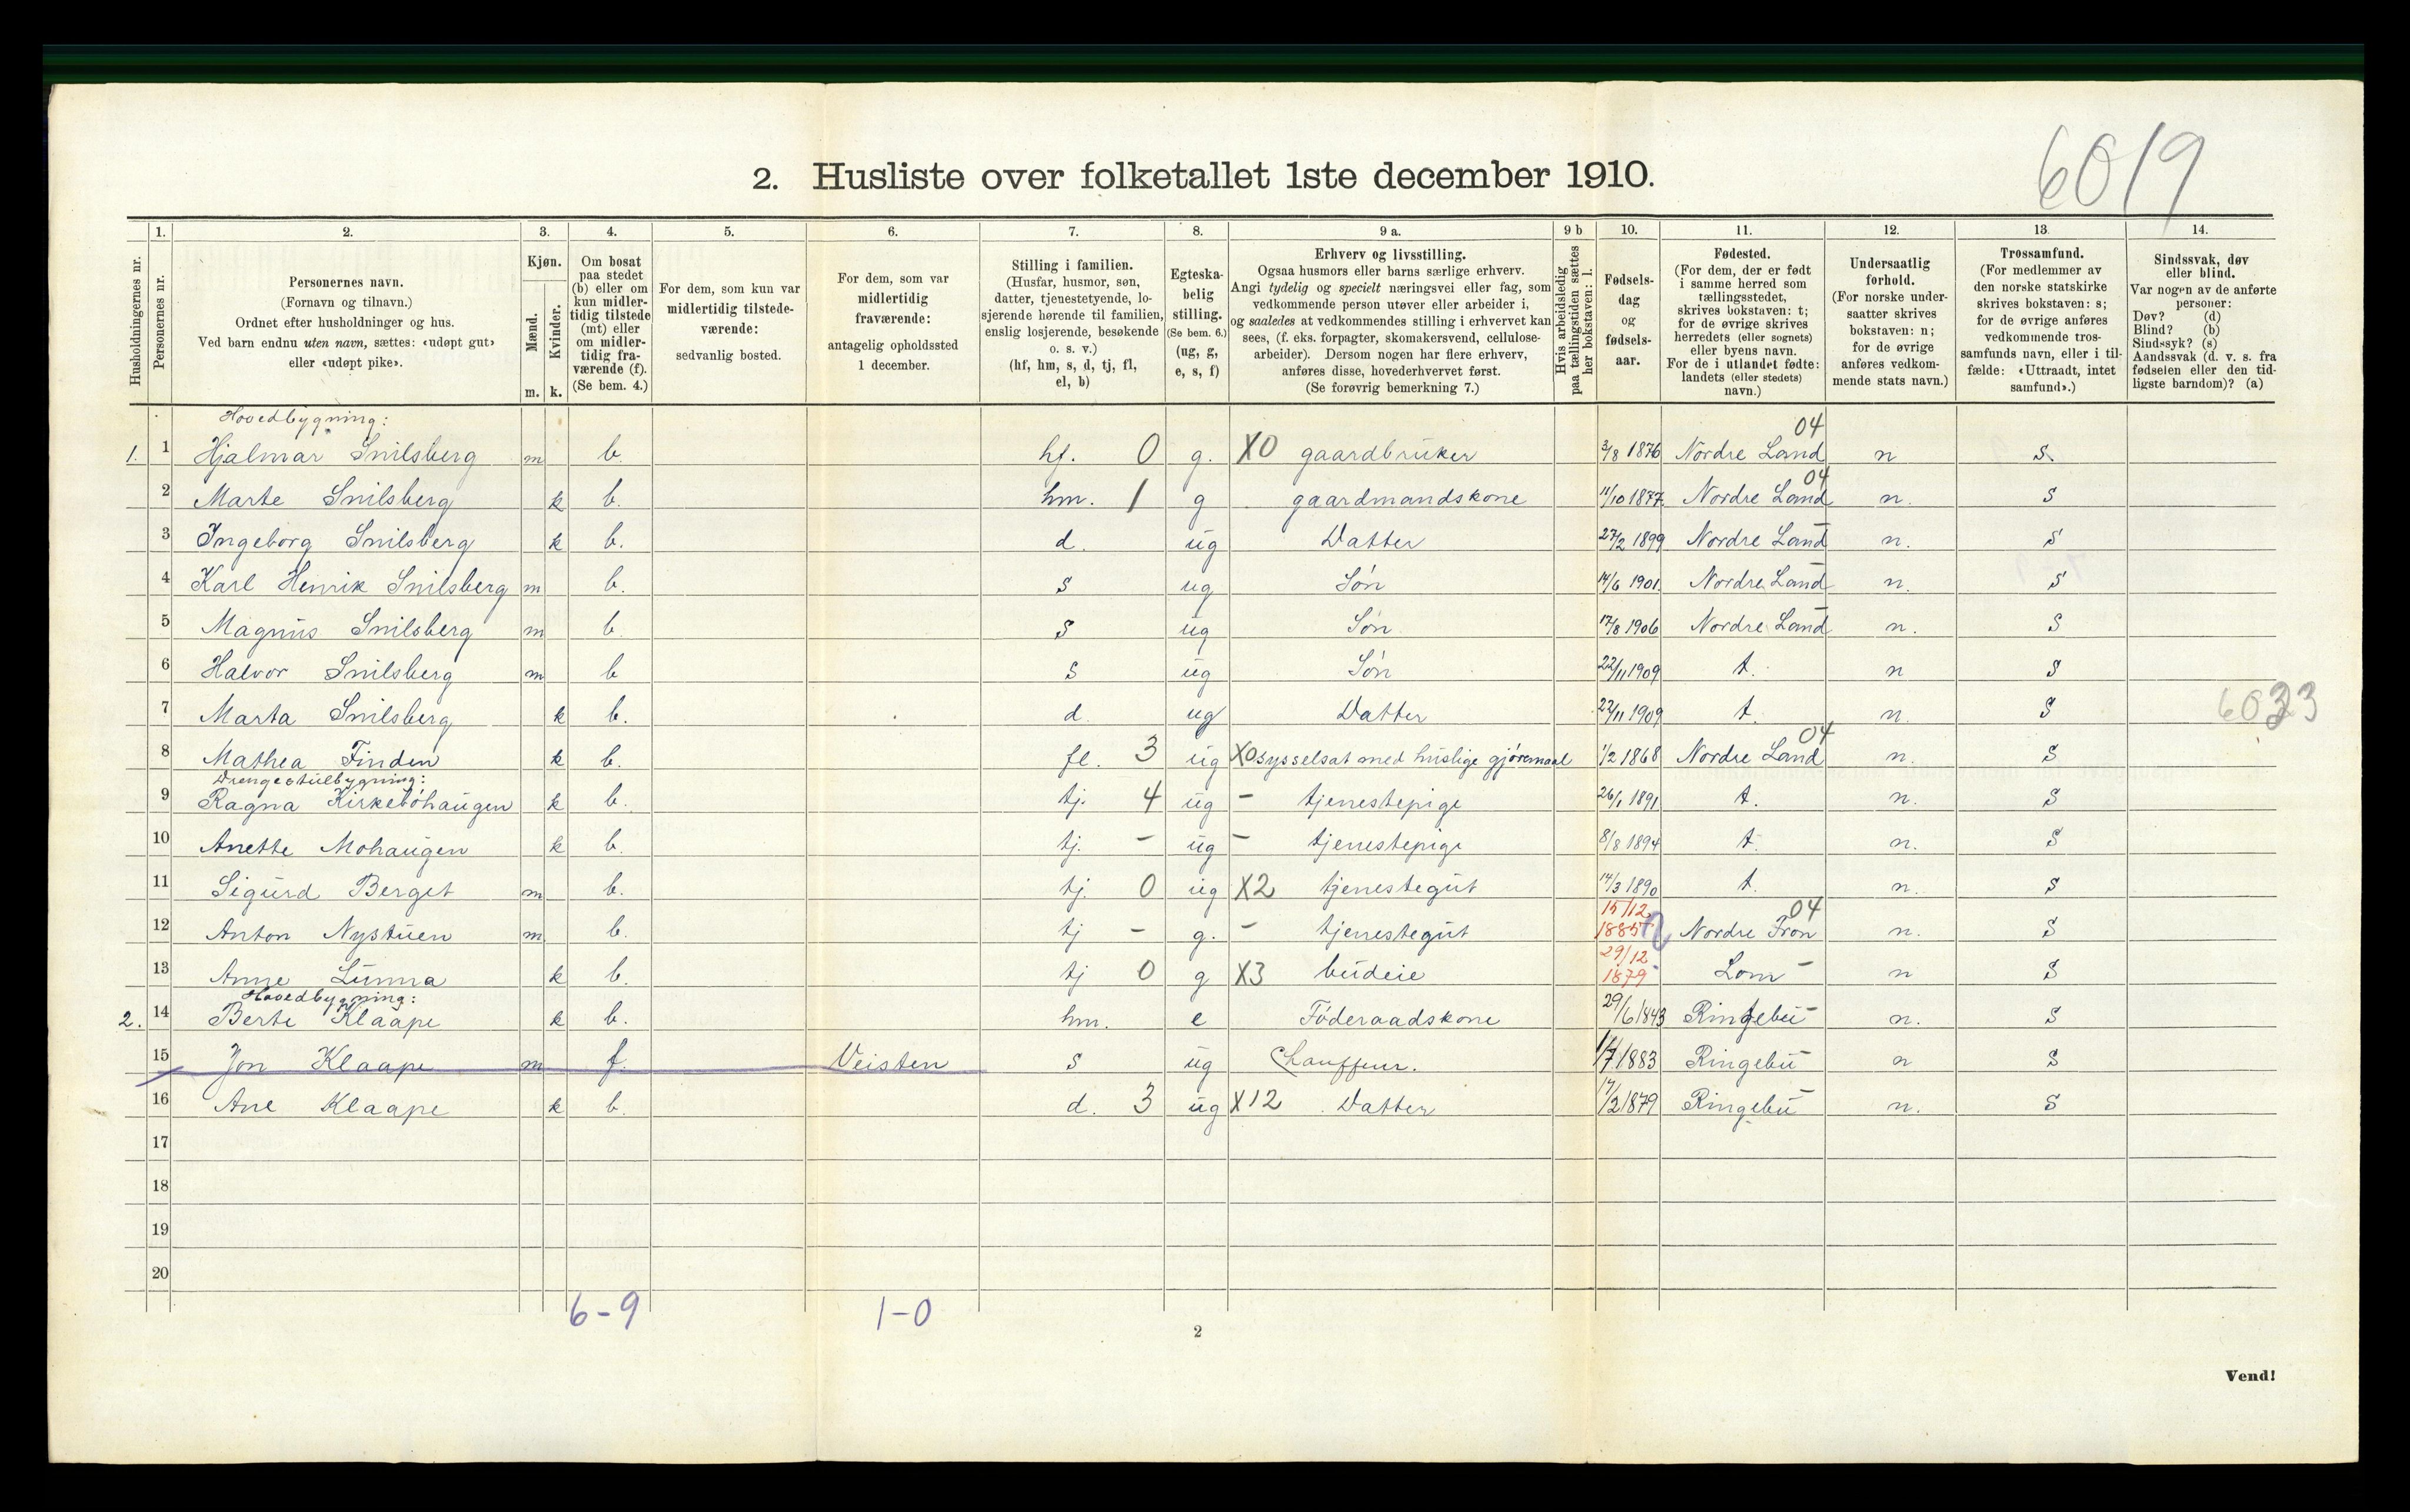 6019
2. Husliste over folketallet 1ste december 1910.
Husholdningernes nr.
1. Personernes nr.
2. Personernes navn.
(Fornavn og tilnavn.)
Ordnet efter husholdninger og hus.
Ved barn endnu uten navn, sættes: «udøpt gut»
eller «udøpt pike».
3. Kjøn.
Mænd. Kvinder.
m. k.
4. Om bosat
paa stedet
(b) eller om
kun midler-
tidig tilstede
(mt) eller
om midler-
tidig fra-
værende (f).
(Se bem. 4.)
5. For dem, som kun var
midlertidig tilstede-
værende:
sedvanlig bosted.
6. For dem, som var
midlertidig
fraværende:
antagelig opholdssted
1 december.
7. Stilling i familien.
(Husfar, husmor, søn,
datter, tjenestetyende, lo-
sjerende hørende til familien,
enslig losjerende, besøkende
o. s. v.)
(hf, hm, s, d, tj, fl,
el, b)
8. Egteska-
belig
stilling.
(Se bem. 6.)
(ug, g,
e, s, f)
9 a. Erhverv og livsstilling.
Ogsaa husmors eller barns særlige erhverv.
Angi tydelig og specielt næringsvei eller fag, som
vedkommende person utøver eller arbeider i,
og saaledes at vedkommendes stilling i erhvervet kan
sees, (f. eks. forpagter, skomakersvend, cellulose-
arbeider). Dersom nogen har flere erhverv,
anføres disse, hovederhvervet først.
(Se forøvrig bemerkning 7.)
9 b Hvis arbeidsledig
paa tællingstiden sættes
her bokstaven: l.
10. Fødsels-
dag
og
fødsels-
aar.
11. Fødested.
(For dem, der er født
i samme herred som
tællingsstedet,
skrives bokstaven: t;
for de øvrige skrives
herredets (eller sognets)
eller byens navn.
For de i utlandet fødte:
landets (eller stedets)
navn.)
12. Undersaatlig
forhold.
(For norske under-
saatter skrives
bokstaven: n;
for de øvrige
anføres vedkom-
mende stats navn.)
13. Trossamfund.
(For medlemmer av
den norske statskirke
skrives bokstaven: s;
for de øvrige anføres
vedkommende tros-
samfunds navn, eller i til-
fælde: «Uttraadt, intet
samfund».)
14. Sindssvak, døv
eller blind.
Var nogen av de anførte
personer:
Døv? (d)
Blind? (b)
Sindssyk? (s)
Aandssvak (d. v. s. fra
fødselen eller den tid-
ligste barndom)? (a)
Hovedbygning:
04
1. 1 Hjalmar Snilsberg m b. hf. 0 g. X0 gaardbruker 3/8 1876 Nordre Land n s.
04
2 Marte Snilsberg k b. hm. 1 g gaardmandskone 11/10 1877 Nordre Land n. s
3 Ingeborg Snilsberg k b. d. ug Datter 27/2 1899 Nordre Land n. s
4 Karl Henrik Snilsberg m b. s ug Søn 14/6 1901. Nordre Land n. s
5 Magnus Snilsberg m b. s ug Søn 17/8 1906 Nordre Land n. s
6 Halvor Snilsberg m b s ug Søn 22/11 1909 t. n s
7 Marta Snilsberg k b. d. ug Datter 22/11 1909 t. n. s 6033
04
8 Mathea Finden k b. fl. 3 ug X0 sysselsat med huslige gjøremaal 1/2 1868 Nordre Land n. s
Drengestulbygning:
9 Ragna Kirkebøhaugen k b. tj. 4 ug - tjenestepige 26/1 1891 t. n. s
10 Anette Mohaugen k b. tj. - ug - tjenestepige 8/8 1894 t. n. s
11 Sigurd Berget m b. tj. 0 ug X2 tjenestegut 14/3 1890 t. n. s
04
12 Anton Nystuen m. b. tj - g. - tjenestegut 15/12 1885 Nordre Fron n. s
13 Anne Lunna k b. tj 0 g X3 budeie 29/12 1879 Lom - n s
Hovedbygning:
2. 14 Berte Klaape k b. hm. e Føderaadskone 29/6 1843 Ringebu - n. s
15 Jon Klaape m f. Veisten s ug Chauffeur. 1/7 1883 Ringebu - n s
16 Ane Klaape k b. d. 3 ug X12 Datter 17/2 1879 Ringebu - n. s
17
18
19
20
6-9 1-0
2
Vend!